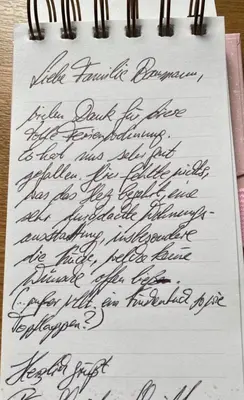 Liebe Familie Baumann,
vielen Dank für diese
tolle Ferienwohnung.
Es hat uns sehr gut
gefallen. Hier fehlte nichts,
was das Herz begehrt eine
sehr durchdachte Wohnungs-
ausstattung, insbesondere
die Küche, welche keine
Wünsche offen ließen.
(... außer vllt. ein
Topflappen?)
Herzlich grüßt